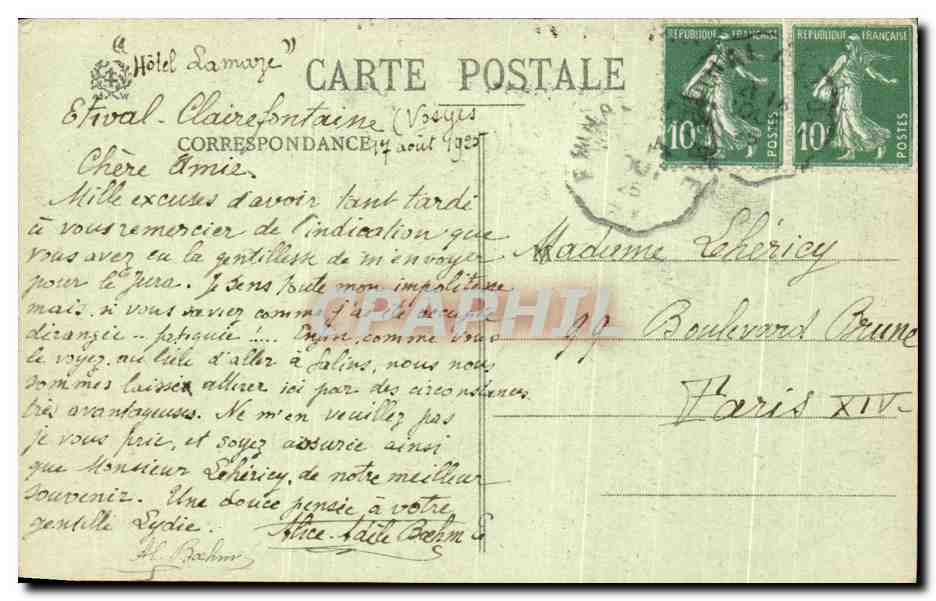 "Hôtel Lamaze"
CARTE POSTALE
Etival-Clairefontaine (Vosges
CORRESPONDANCE
17 août 1925
Chère Amie.
Mille excuses d'avoir tant tardé
à vous remercier de l'indication que
vous avez eu la gentillesse de m'envoyer
pour le Jura. Je sens toute mon impolitesse
mais, si vous saviez comme j'ai été occupée
dérangée .. fatiguée !.... Enfin, comme vous
le voyez, au lieu d'aller à Salins, nous nous
sommes laissé attirer ici par des circonstances
très avantageuses. Ne m'en veuillez pas
je vous prie, et soyez assurée ainsi
que Monsieur Lehéricy, de notre meilleur
souvenir. Une douce pensée à votre
gentille Lydie. Alice-Adèle Bœhm
Al. Bœhm
REPUBLIQUE FRANÇAISE
10c
POSTES
REPUBLIQUE FRANÇAISE
10c
POSTES
Madame Lehéricy
99 Boulevard Brune
Paris XIV
CPAPHIL